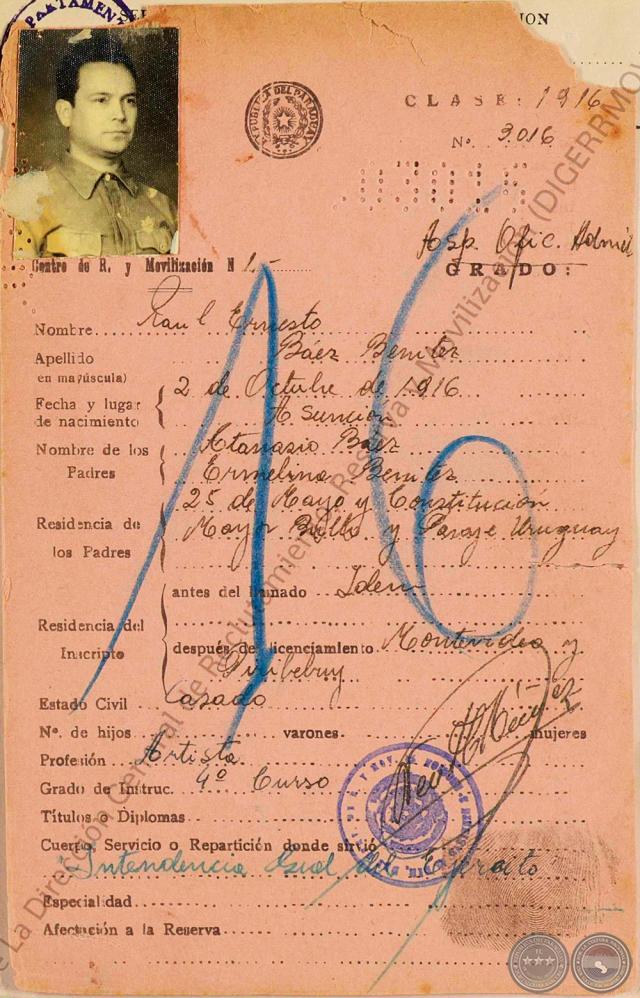 PARTAMENT
ION
REPUBLICA DEL PARAGUAY
CLASE: 1916
Nº 3.016
03016
Asp. Ofic. Adm
GRADO:
Centro de R. y Movilización N 1.-
16
Nombre Raul Ernesto
Apellido Báez Benitez
en mayúscula)
Fecha y lugar de nacimiento 2 de Octubre de 1916
Asunción
Nombre de los Padres Atanasio Báez
Ermelina Benitez
Residencia de los Padres 25 de Mayo y Constitución
Mayor Bullo y Pasaje Uruguay
Residencia del Inscripto
antes del llamado Idem
después de licenciamiento Montevideo y
Piribebuy
Estado Civil Casado
Nº. de hijos varones mujeres
Profesión Artista
Grado de Instruc. 4º Curso
Títulos o Diplomas
Cuerpo, Servicio o Repartición donde sirvió
Intendencia Gral del Ejercito
Especialidad
Afectación a la Reserva
La Dirección General de Reclutamiento, Reserva y Movilización (DIGERRMOV